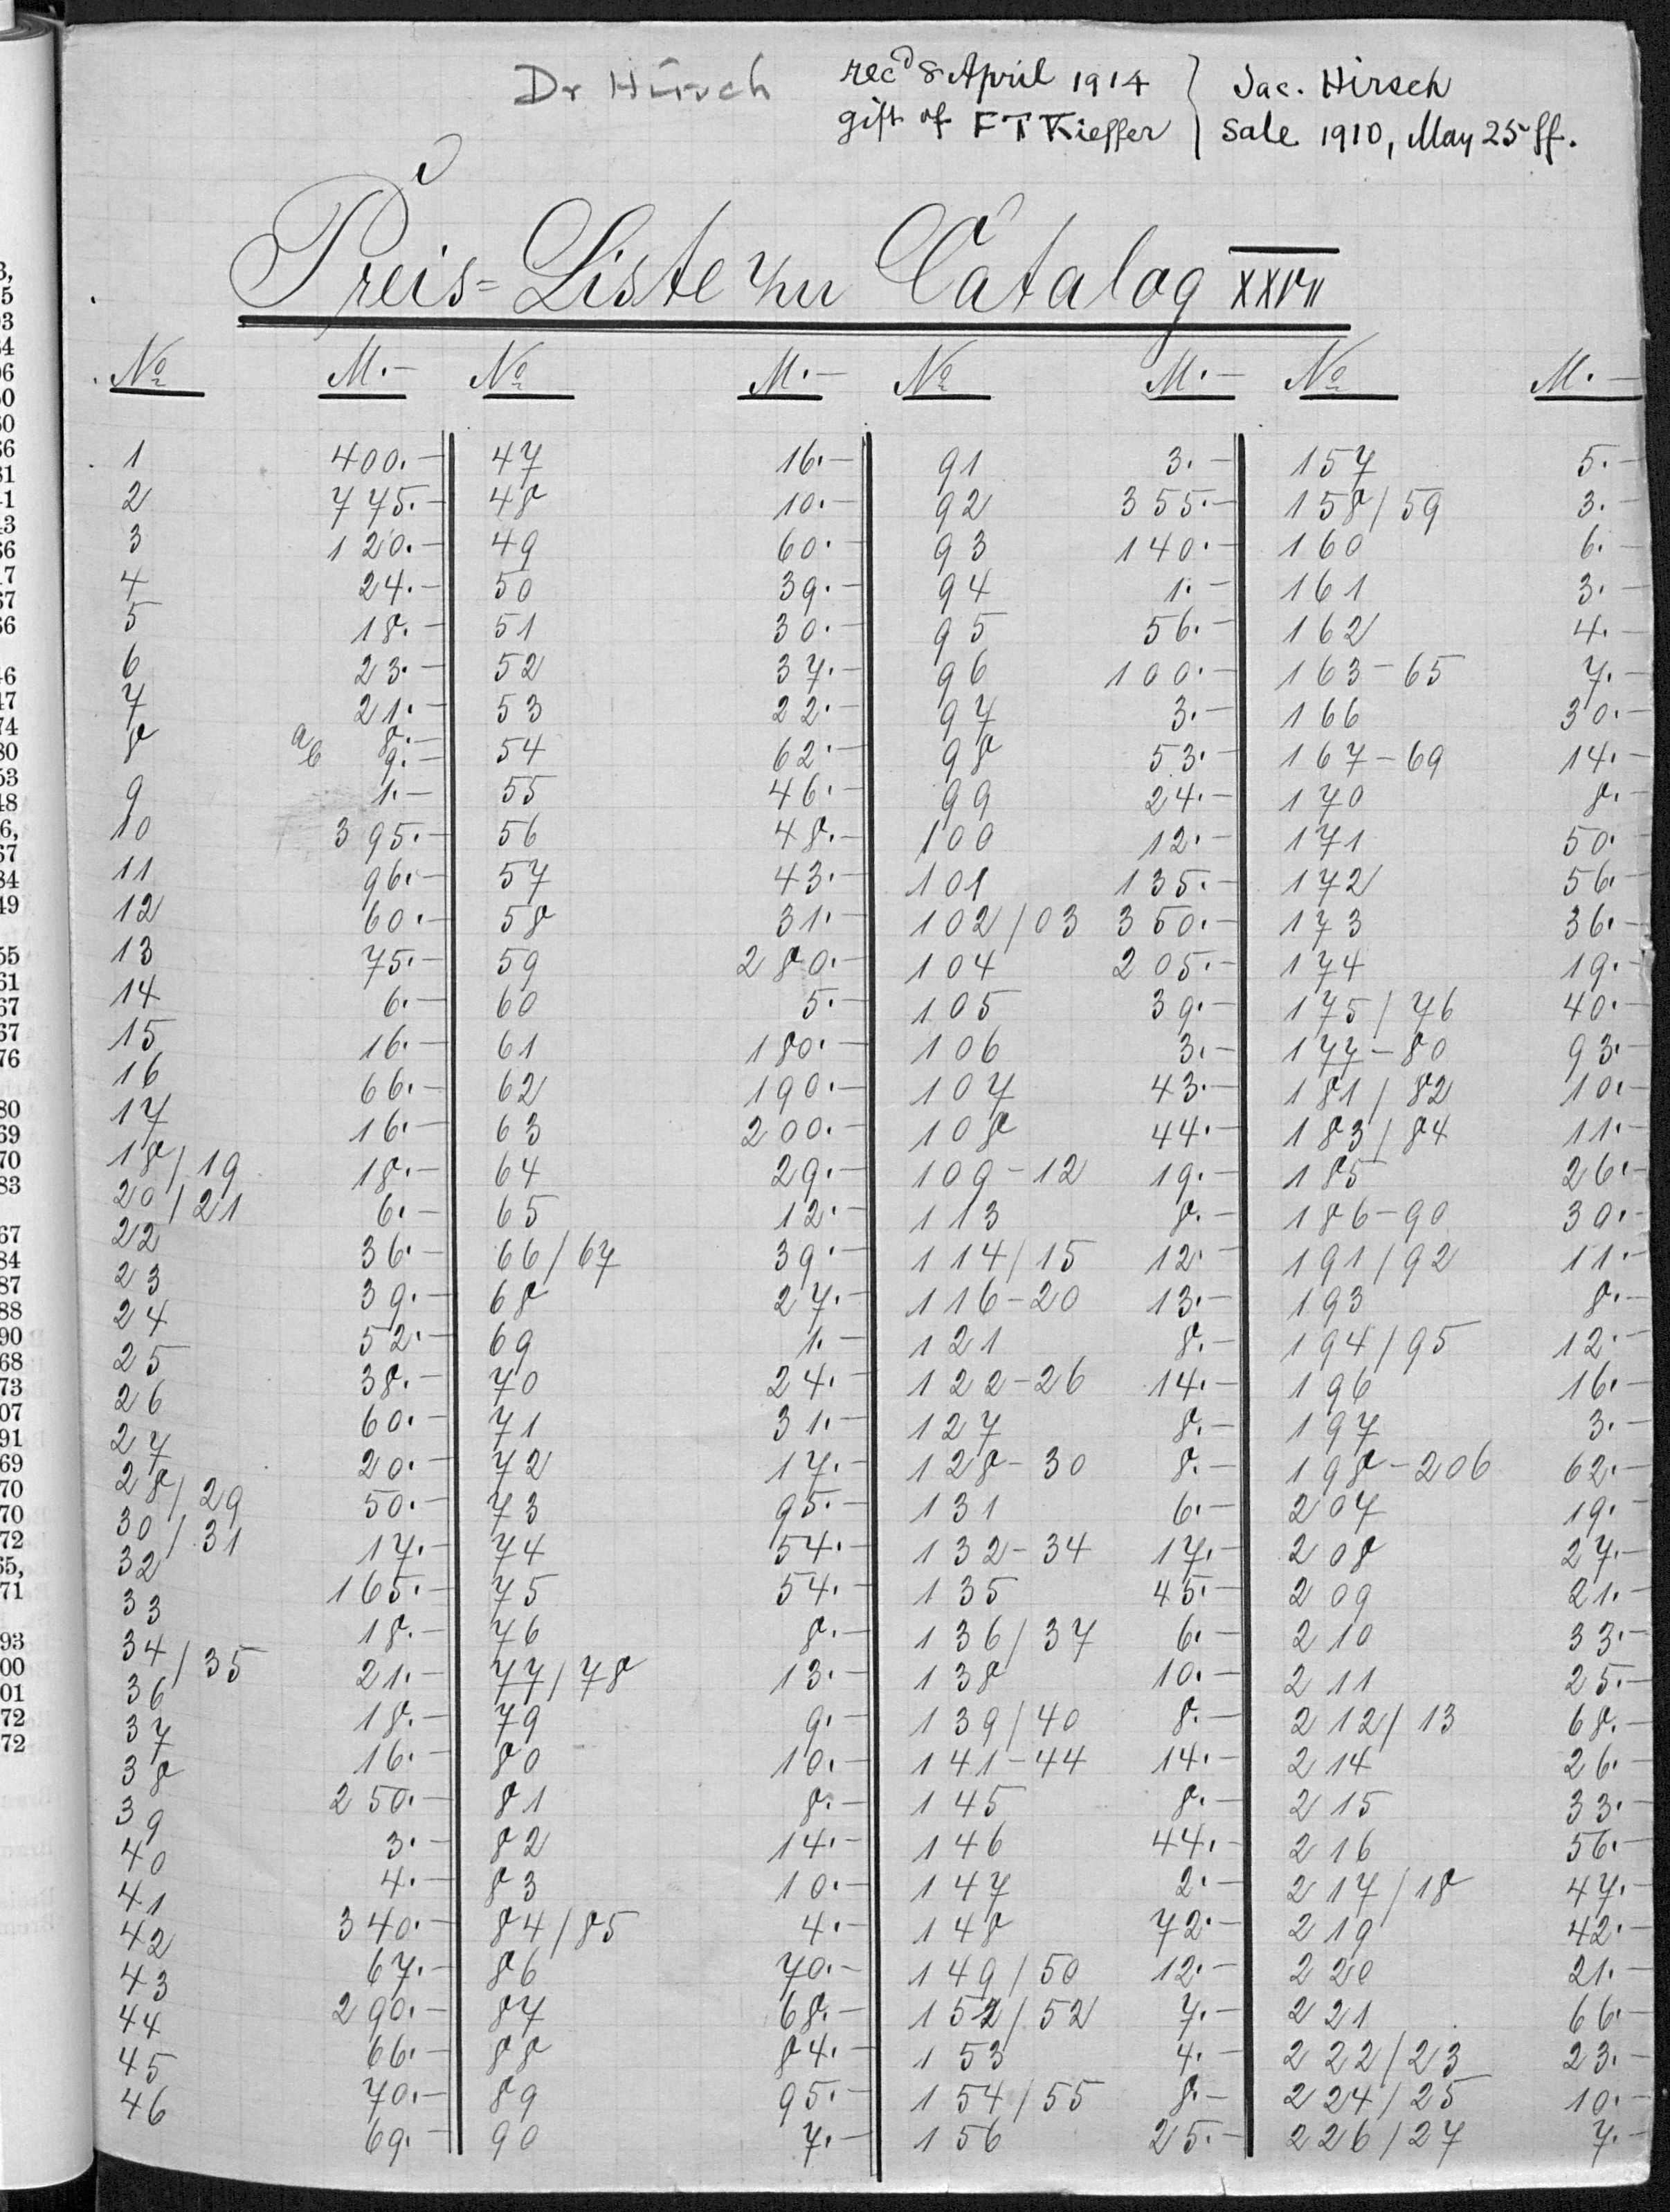 Dr Hirsch
recd 8 April 1914 } Jac. Hirsch
gift of F T Kieffer } Sale 1910, May 25 ff.
Preis=Liste zu Catalog XXVII
No M.– No M.– No M.– No M.–
1 400.– 47 16.– 91 3.– 157 5.–
2 775.– 48 10.– 92 355.– 158/59 3.–
3 120.– 49 60.– 93 140.– 160 6.–
4 24.– 50 39.– 94 1.– 161 3.–
5 18.– 51 30.– 95 56.– 162 4.–
6 23.– 52 37.– 96 100.– 163–65 7.–
7 21.– 53 22.– 97 3.– 166 30.–
8 a 8.– b 9.– 54 62.– 98 53.– 167–69 14.–
9 1.– 55 46.– 99 24.– 170 8.–
10 395.– 56 48.– 100 12.– 171 50.–
11 96.– 57 43.– 101 135.– 172 56.–
12 60.– 58 31.– 102/03 350.– 173 36.–
13 75.– 59 280.– 104 205.– 174 19.–
14 6.– 60 5.– 105 39.– 175/76 40.–
15 16.– 61 180.– 106 3.– 177–80 93.–
16 66.– 62 190.– 107 43.– 181/82 10.–
17 16.– 63 200.– 108 44.– 183/84 11.–
18/19 18.– 64 29.– 109–12 19.– 185 26.–
20/21 6.– 65 12.– 113 8.– 186–90 30.–
22 36.– 66/67 39.– 114/15 12.– 191/92 11.–
23 39.– 68 27.– 116–20 13.– 193 8.–
24 52.– 69 1.– 121 8.– 194/95 12.–
25 38.– 70 24.– 122–26 14.– 196 16.–
26 60.– 71 31.– 127 8.– 197 3.–
27 20.– 72 17.– 128–30 8.– 198–206 62.–
28/29 50.– 73 95.– 131 6.– 207 19.–
30/31 17.– 74 54.– 132–34 17.– 208 27.–
32 165.– 75 54.– 135 45.– 209 21.–
33 18.– 76 8.– 136/37 6.– 210 33.–
34/35 21.– 77/78 13.– 138 10.– 211 25.–
36 18.– 79 9.– 139/40 8.– 212/13 68.–
37 16.– 80 10.– 141–44 14.– 214 26.–
38 250.– 81 8.– 145 8.– 215 33.–
39 3.– 82 14.– 146 44.– 216 56.–
40 4.– 83 10.– 147 2.– 217/18 47.–
41 340.– 84/85 4.– 148 72.– 219 42.–
42 67.– 86 70.– 149/50 12.– 220 21.–
43 290.– 87 68.– 151/52 7.– 221 66.–
44 66.– 88 84.– 153 4.– 222/23 23.–
45 70.– 89 95.– 154/55 8.– 224/25 10.–
46 69.– 90 7.– 156 25.– 226/27 7.–